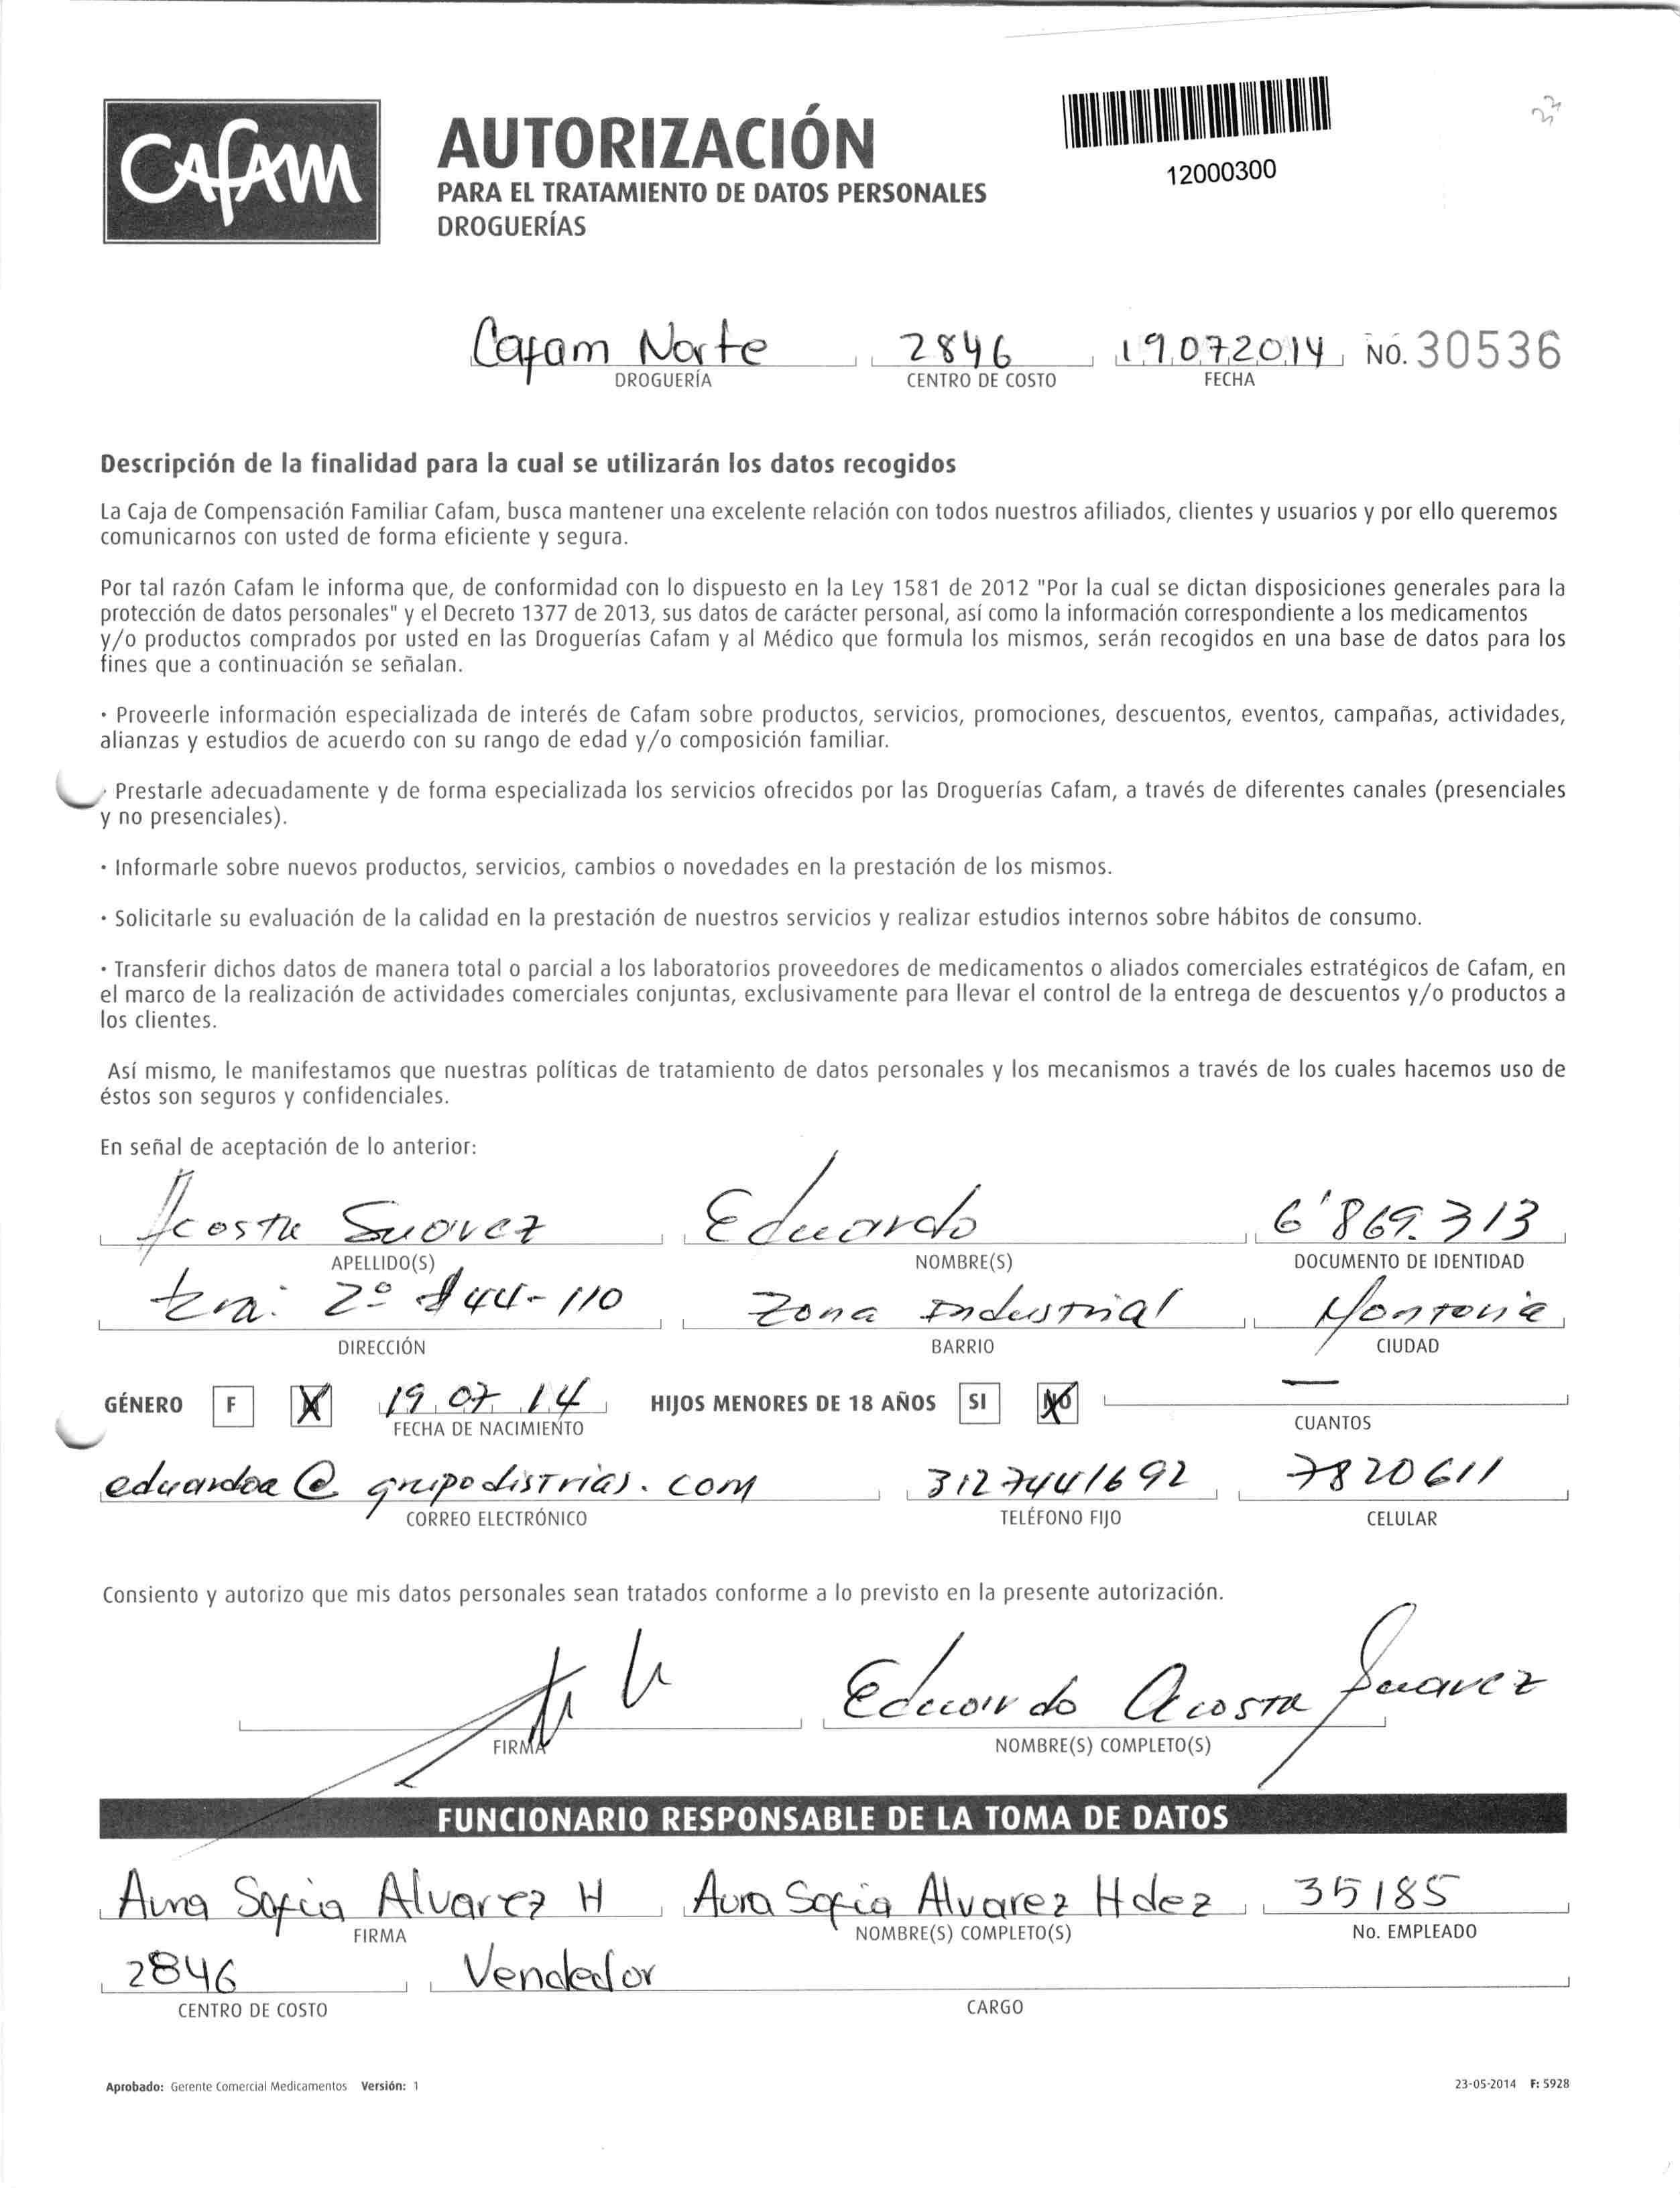 Cafam
AUTORIZACIÓN
PARA EL TRATAMIENTO DE DATOS PERSONALES
DROGUERÍAS
12000300
Cafam Norte 2846 19072014 NO. 30536
DROGUERÍA CENTRO DE COSTO FECHA
Descripción de la finalidad para la cual se utilizarán los datos recogidos
La Caja de Compensación Familiar Cafam, busca mantener una excelente relación con todos nuestros afiliados, clientes y usuarios y por ello queremos
comunicarnos con usted de forma eficiente y segura.
Por tal razón Cafam le informa que, de conformidad con lo dispuesto en la Ley 1581 de 2012 "Por la cual se dictan disposiciones generales para la
protección de datos personales" y el Decreto 1377 de 2013, sus datos de carácter personal, así como la información correspondiente a los medicamentos
y/o productos comprados por usted en las Droguerías Cafam y al Médico que formula los mismos, serán recogidos en una base de datos para los
fines que a continuación se señalan.
· Proveerle información especializada de interés de Cafam sobre productos, servicios, promociones, descuentos, eventos, campañas, actividades,
alianzas y estudios de acuerdo con su rango de edad y/o composición familiar.
· Prestarle adecuadamente y de forma especializada los servicios ofrecidos por las Droguerías Cafam, a través de diferentes canales (presenciales
y no presenciales).
· Informarle sobre nuevos productos, servicios, cambios o novedades en la prestación de los mismos.
· Solicitarle su evaluación de la calidad en la prestación de nuestros servicios y realizar estudios internos sobre hábitos de consumo.
· Transferir dichos datos de manera total o parcial a los laboratorios proveedores de medicamentos o aliados comerciales estratégicos de Cafam, en
el marco de la realización de actividades comerciales conjuntas, exclusivamente para llevar el control de la entrega de descuentos y/o productos a
los clientes.
Así mismo, le manifestamos que nuestras políticas de tratamiento de datos personales y los mecanismos a través de los cuales hacemos uso de
éstos son seguros y confidenciales.
En señal de aceptación de lo anterior:
Acosta Suarez Eduardo 6'869.313
APELLIDO(S) NOMBRE(S) DOCUMENTO DE IDENTIDAD
2º 44-110 Zona Industrial Monteria
DIRECCIÓN BARRIO CIUDAD
GÉNERO F X 19 07 14 HIJOS MENORES DE 18 AÑOS SI NO —
FECHA DE NACIMIENTO CUANTOS
eduardoa@grupodistrias.com 3127441692 7820611
CORREO ELECTRÓNICO TELÉFONO FIJO CELULAR
Consiento y autorizo que mis datos personales sean tratados conforme a lo previsto en la presente autorización.
Eduardo Acosta Suarez
FIRMA NOMBRE(S) COMPLETO(S)
FUNCIONARIO RESPONSABLE DE LA TOMA DE DATOS
Aura Sofia Alvarez H Aura Sofia Alvarez Hdez 35185
FIRMA NOMBRE(S) COMPLETO(S) No. EMPLEADO
2846 Vendedor
CENTRO DE COSTO CARGO
Aprobado: Gerente Comercial Medicamentos Versión: 1 23-05-2014 F: 5928